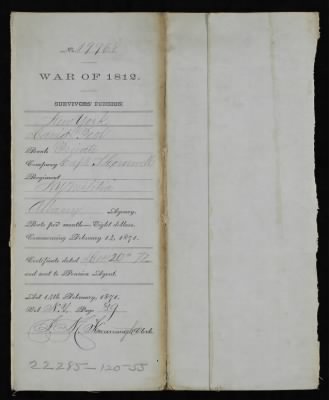 No.
WAR OF 1812.
SURVIVORS' PENSION
New York
Rank Private
Company Capt.
Regiment
N.Y. Militia
Albany Agency.
Rate per month—Eight dollars.
Commencing February 14, 1871.
Certificate dated 20th 72
and sent to Pension Agent.
Act 14th February, 1871.
Vol N.Y. Page 89
Clerk.
22285-120-55